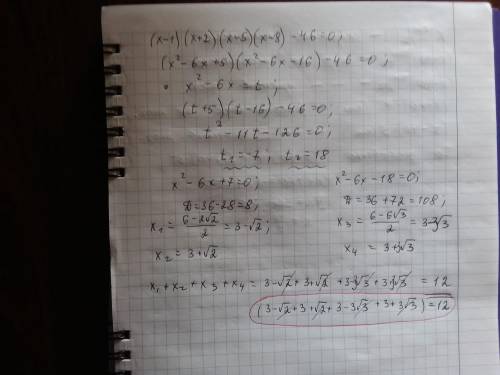 (x-1)(x+2)(x-5)(x-8)-46=0;
(x²-6x+5)(x²-6x-16)-46=0;
x²-6x=t;
(t+5)(t-16)-46=0,
t²-11t-126=0;
t₁=-7; t₂=18
x²-6x+7=0;
D=36-28=8;
x₁=(6-2√2)/2=3-√2;
x₂=3+√2
x²-6x-18=0;
D=36+72=108;
x₃=(6-6√3)/2=3-3√3
x₄=3+3√3
x₁+x₂+x₃+x₄=3-√2+3+√2+3-3√3+3+3√3=12
(3-√2+3+√2+3-3√3+3+3√3)=12